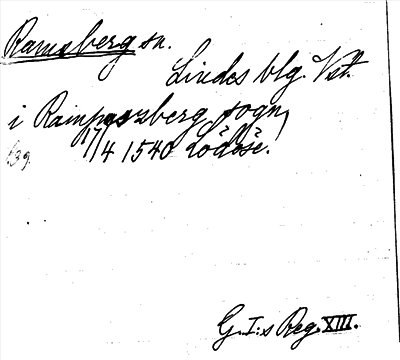 Ramsberg sn.
Lindes blg. Vstm.
i Rampnszberg sogn,
139. 17/4 1540 Lödöse.
G.I:s Reg. XIII.